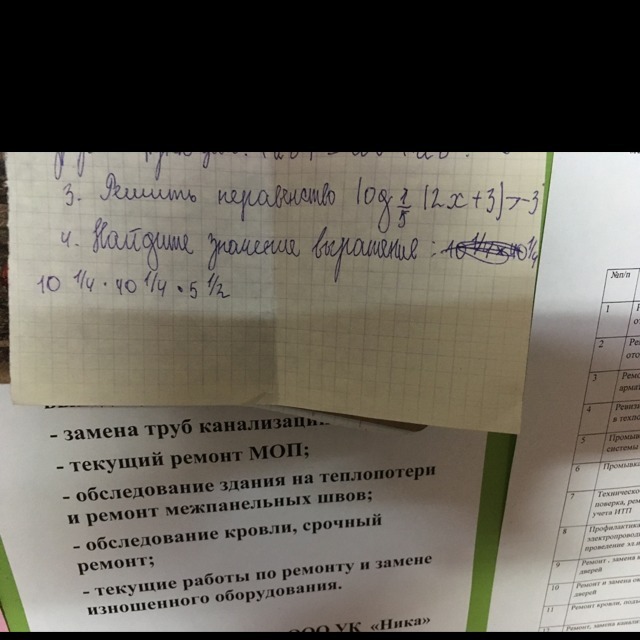 3. Решить неравенство log 1/5 (2x+3)>-3
4. Найдите значение выражения:
10 1/4 · 40 1/4 · 5 1/2
- замена труб канализации
- текущий ремонт МОП;
- обследование здания на теплопотери
и ремонт межпанельных швов;
- обследование кровли, срочный
ремонт;
- текущие работы по ремонту и замене
изношенного оборудования.
ООО УК «Ника»
№п/п
1
2
3
4 Ревизи
в техпо
5 Промыв
системы
6 Промывка
7 Техническо
поверка, рем
учета ИТП
8 Профилактика
электропровод
проведение эл.и
9 Ремонт, замена
дверей
10 Ремонт и замена ок
дверей
11 Ремонт кровли, подъ
12 Ремонт, замена канали